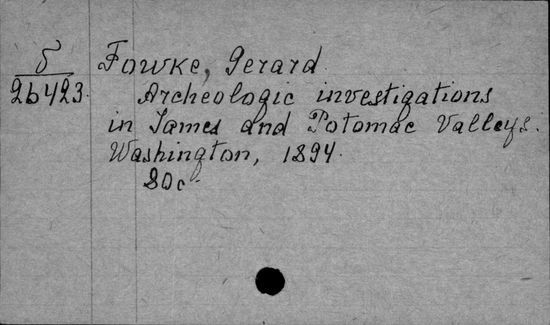 δ
26423.
Fowke, Gerard
Archeologic investigations
in James and Potomac Valleys.
Washington, 1894.
80c